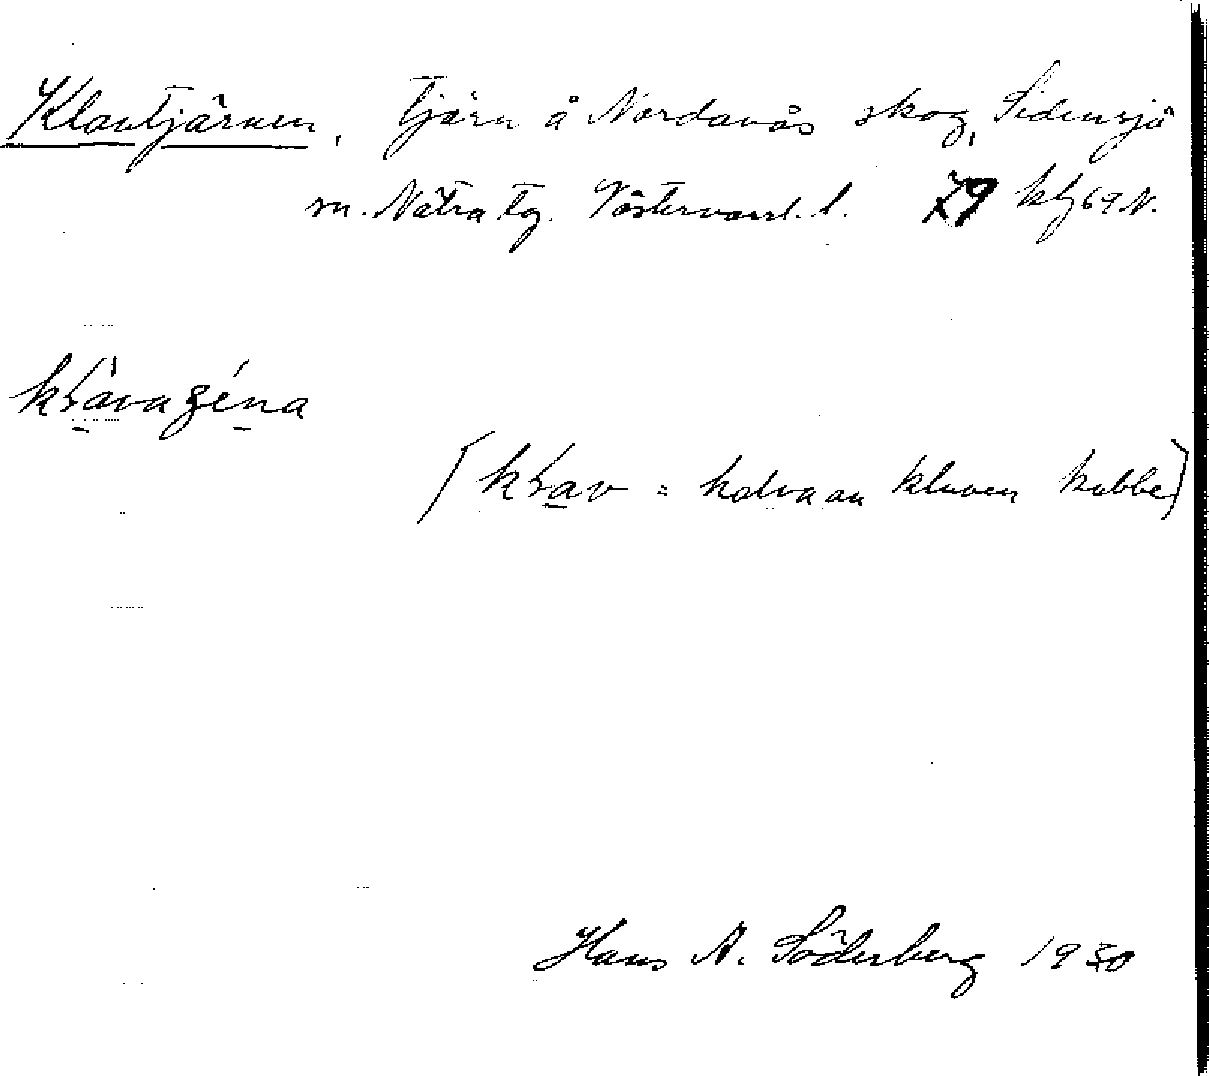 Klavtjärnen, Tjärn å Nordanås skog, Sidensjö
sn. Nätra tg. Västernorrl. l. 79 klj 69 N.
kḷàvaʒę́na
(kḷav = halvan kluven kubbe)
Hans A. Söderberg 1930